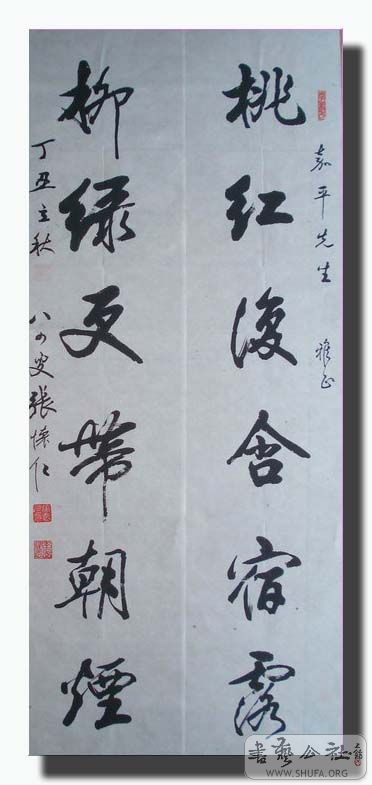 嘉平先生 雅正
桃红復含宿露
柳绿更带朝煙
丁丑立秋
八十叟張懷仁
書藝公社
WWW.SHUFA.ORG